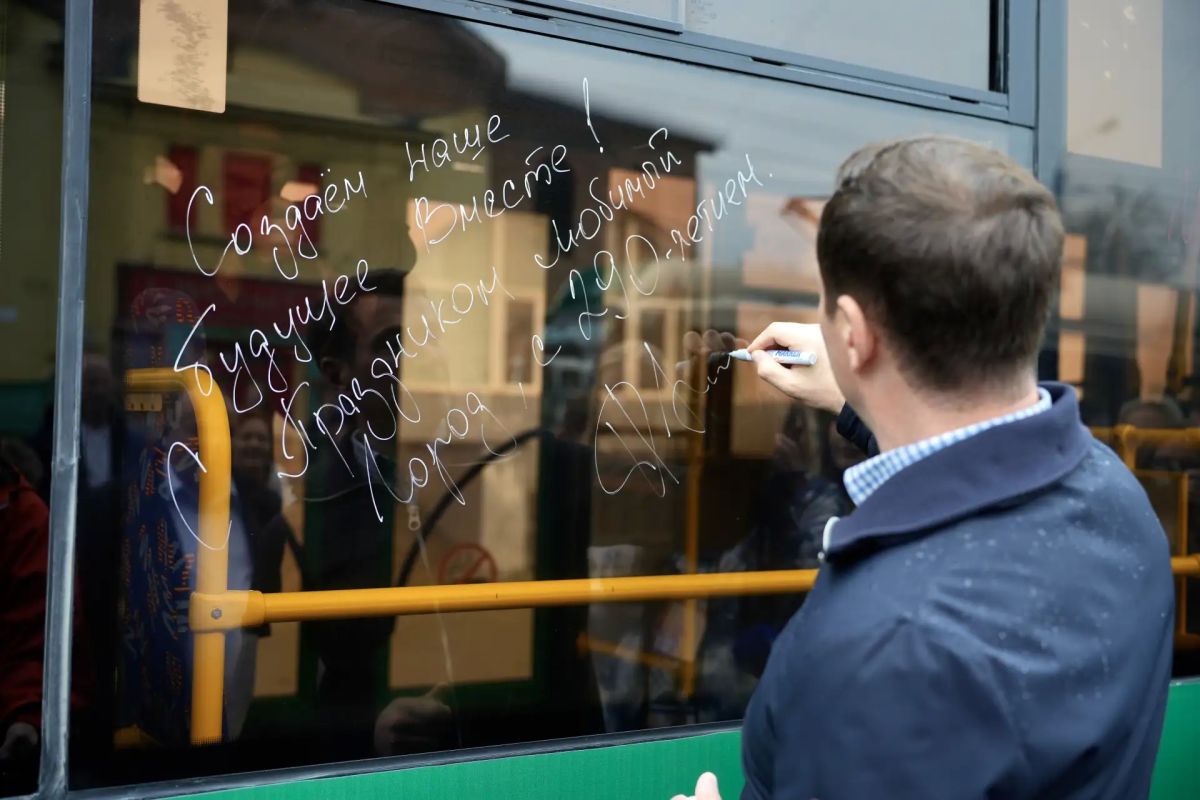 Создаём наше
Будущее Вместе!
С Праздником любимый
город, с 290-летием.